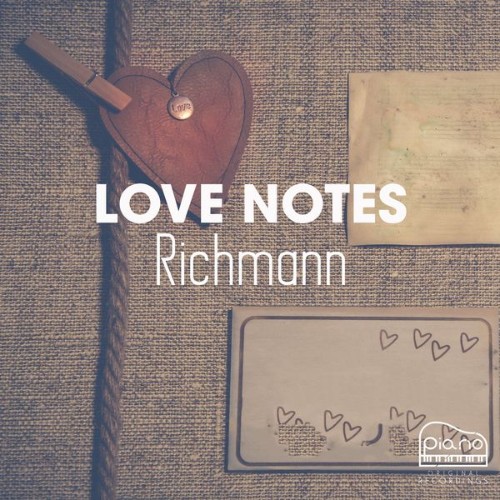 Love
LOVE NOTES
Richmann
piano
ORIGINAL
RECORDINGS